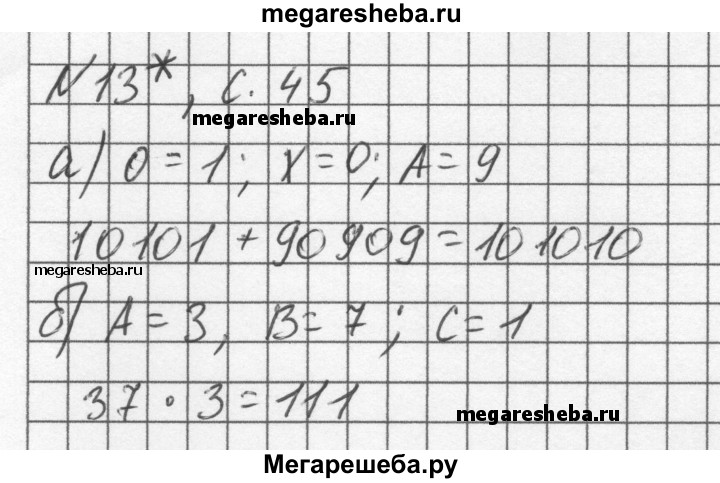 megaresheba.ru
N 13*, с. 45
megaresheba.ru
а) О = 1; Х = 0; А = 9
10101 + 90909 = 101010
megaresheba.ru
б) А = 3, В = 7; С = 1
37 · 3 = 111
megaresheba.ru
Мегарешеба.ру